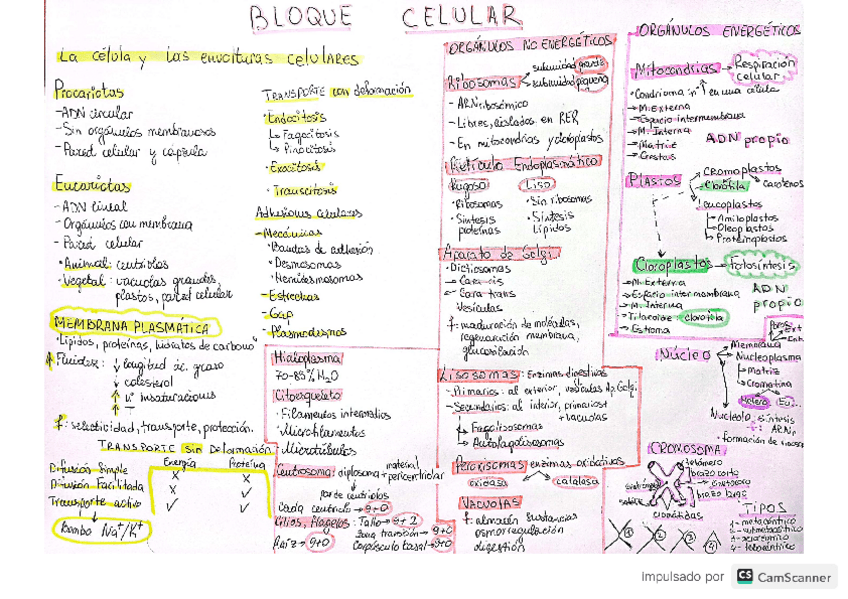 BLOQUE CELULAR
La célula y las envolturas celulares
Procariotas
- ADN circular
- Sin orgánulos membranosos
- Pared celular y cápsula
Eucariotas
- ADN lineal
- Orgánulos con membrana
- Pared celular
• Animal: centriolos
• Vegetal: vacuolas grandes,
plastos, pared celular
MEMBRANA PLASMÁTICA
• Lípidos, proteínas, hidratos de carbono
↑ Fluidez: ↓ longitud ác. graso
↓ colesterol
↑ nº insaturaciones
↑ T
f: selectividad, transporte, protección.
TRANSPORTE sin Deformación
Energía Proteína
Difusión Simple X X
Difusión Facilitada X ✓
Transporte activo ✓ ✓
Bomba Na⁺/K⁺
TRANSPORTE con deformación
• Endocitosis
↳ Fagocitosis
↳ Pinocitosis
• Exocitosis
• Transcitosis
Adhesiones celulares
- Mecánicas
• Bandas de adhesión
• Desmosomas
• Hemidesmosomas
- Estrechas
- Gap
- Plasmodesmos
Hialoplasma
70-85% H₂O
Citoesqueleto
• Filamentos intermedios
• Microfilamentos
• Microtúbulos
Centrosoma: diplosoma + material pericentriolar
par de centriolos
Cada centriolo → 9+0
Cilios, Flagelos: Tallo → 9+2
Zona transición → 9+0
Raíz → 9+0 Corpúsculo basal → 9+0
ORGÁNULOS NO ENERGÉTICOS
Ribosomas
subunidad grande
subunidad pequeña
- ARN ribosómico
- Libres, aislados, en RER
- En mitocondrias y cloroplastos
Retículo Endoplasmático
Rugoso Liso
• Ribosomas • Sin ribosomas
• Síntesis proteínas • Síntesis lípidos
Aparato de Golgi
• Dictiosomas
→ Cara cis
→ Cara trans
Vesículas
f: maduración de moléculas,
regeneración membrana,
glucosilación
Lisosomas: Enzimas digestivas
- Primarios: al exterior, vesículas de Golgi
- Secundarios: al interior, primarios + vacuolas
→ Fagolisosomas
→ Autofagolisosomas
Peroxisomas enzimas oxidativas
oxidasa catalasa
Vacuolas
f: almacén sustancias
osmorregulación
digestión
ORGÁNULOS ENERGÉTICOS
Mitocondrias → Respiración celular
• Condrioma: en una célula
→ M. Externa
→ Espacio intermembrana
→ M. Interna
→ Matriz
→ Crestas
ADN propio
Plastos
Cromoplastos
Clorofila carotenos
Leucoplastos
Amiloplastos
Oleoplastos
Proteinoplastos
Cloroplastos → Fotosíntesis
→ M. Externa
→ Espacio intermembrana
→ M. Interna
→ Tilacoide: clorofila
→ Estroma
ADN propio
Núcleo
Membrana
Nucleoplasma
Matriz
Cromatina
Hetero Eu...
Nucleolo
f: síntesis ARNr
CROMOSOMA
telómero
brazo corto
centrómero
brazo largo
cromátidas
TIPOS
1- metacéntrico
2- submetacéntrico
3- acrocéntrico
4- telocéntrico
1 2 3 4
Impulsado por CS CamScanner